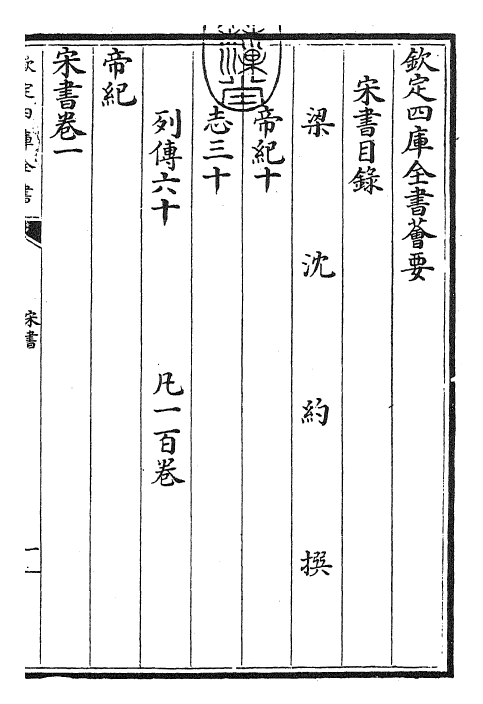 欽定四庫全書薈要
宋書目錄
梁沈約撰
帝紀十
志三十
列傳六十 凡一百卷
帝紀
宋書卷一
欽定四庫全書
宋書
一